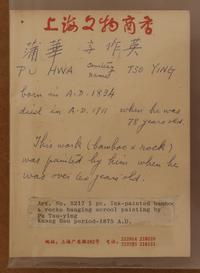 上海文物商店
蒲華 字作英
PU HWA courtesy name TSO YING
born in A.D. 1834
died in A.D. 1911 when he was
78 years old.
This work (bamboo & rock)
was painted by him when he
was over years old.
Art. No. 3217 1 pc. Ink-painted bamboo
& rocks hanging scrool painting by
Pu Tso-ying
Kuang Hsu period-1875 A.D.
地址：上海广东路 电话：